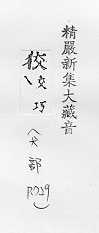 精嚴新集大藏音
狡
交
巧
（犬部
P029）